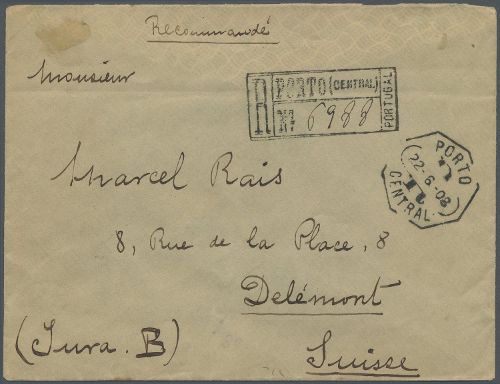 Recommandé
Monsieur
R PORTO (CENTRAL) PORTUGAL
Nº 6988
PORTO
22-6-08
CENTRAL
Marcel Rais
8, Rue de la Place, 8
Delémont
(Jura. B)
Suisse